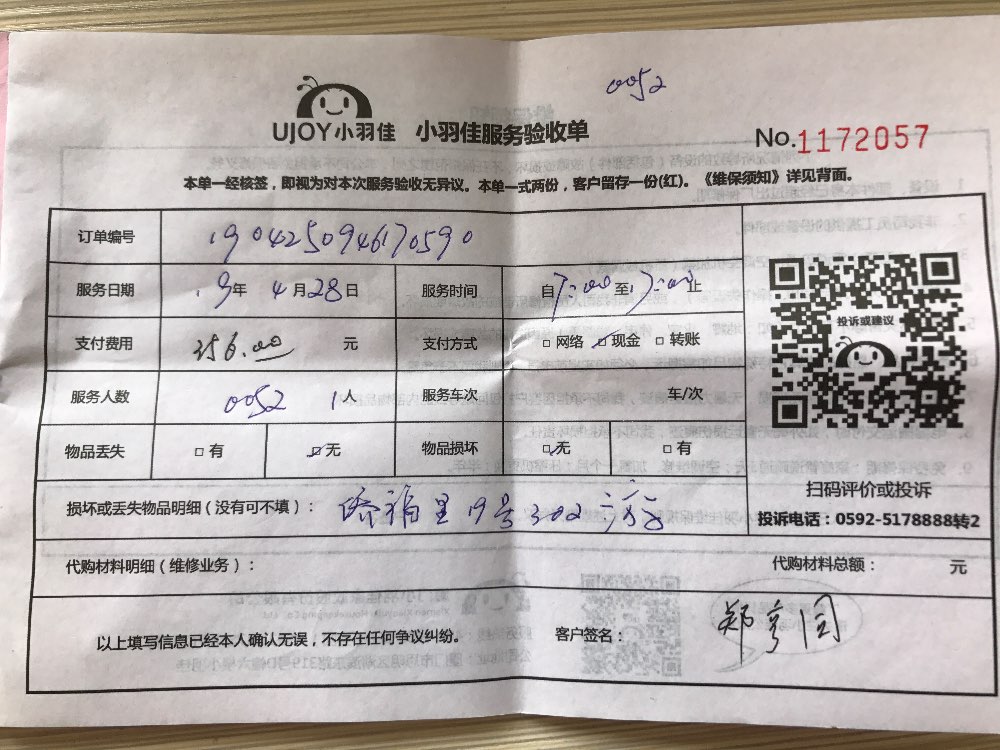 0052
UJOY小羽佳 小羽佳服务验收单
No.1172057
本单一经核签，即视为对本次服务验收无异议。本单一式两份，客户留存一份(红)。《维保须知》详见背面。
订单编号 1904250946170590
服务日期 19年 4月28日 服务时间 自 :00至 :00止
支付费用 356.00 元 支付方式 □网络 ☑现金 □转账
投诉或建议
服务人数 0052 1人 服务车次 车/次
物品丢失 □有 ☑无 物品损坏 ☑无 □有
扫码评价或投诉
损坏或丢失物品明细（没有可不填）： 福里19号302
投诉电话：0592-5178888转2
代购材料明细（维修业务）： 代购材料总额： 元
以上填写信息已经本人确认无误，不存在任何争议纠纷。 客户签名： 郑亨同